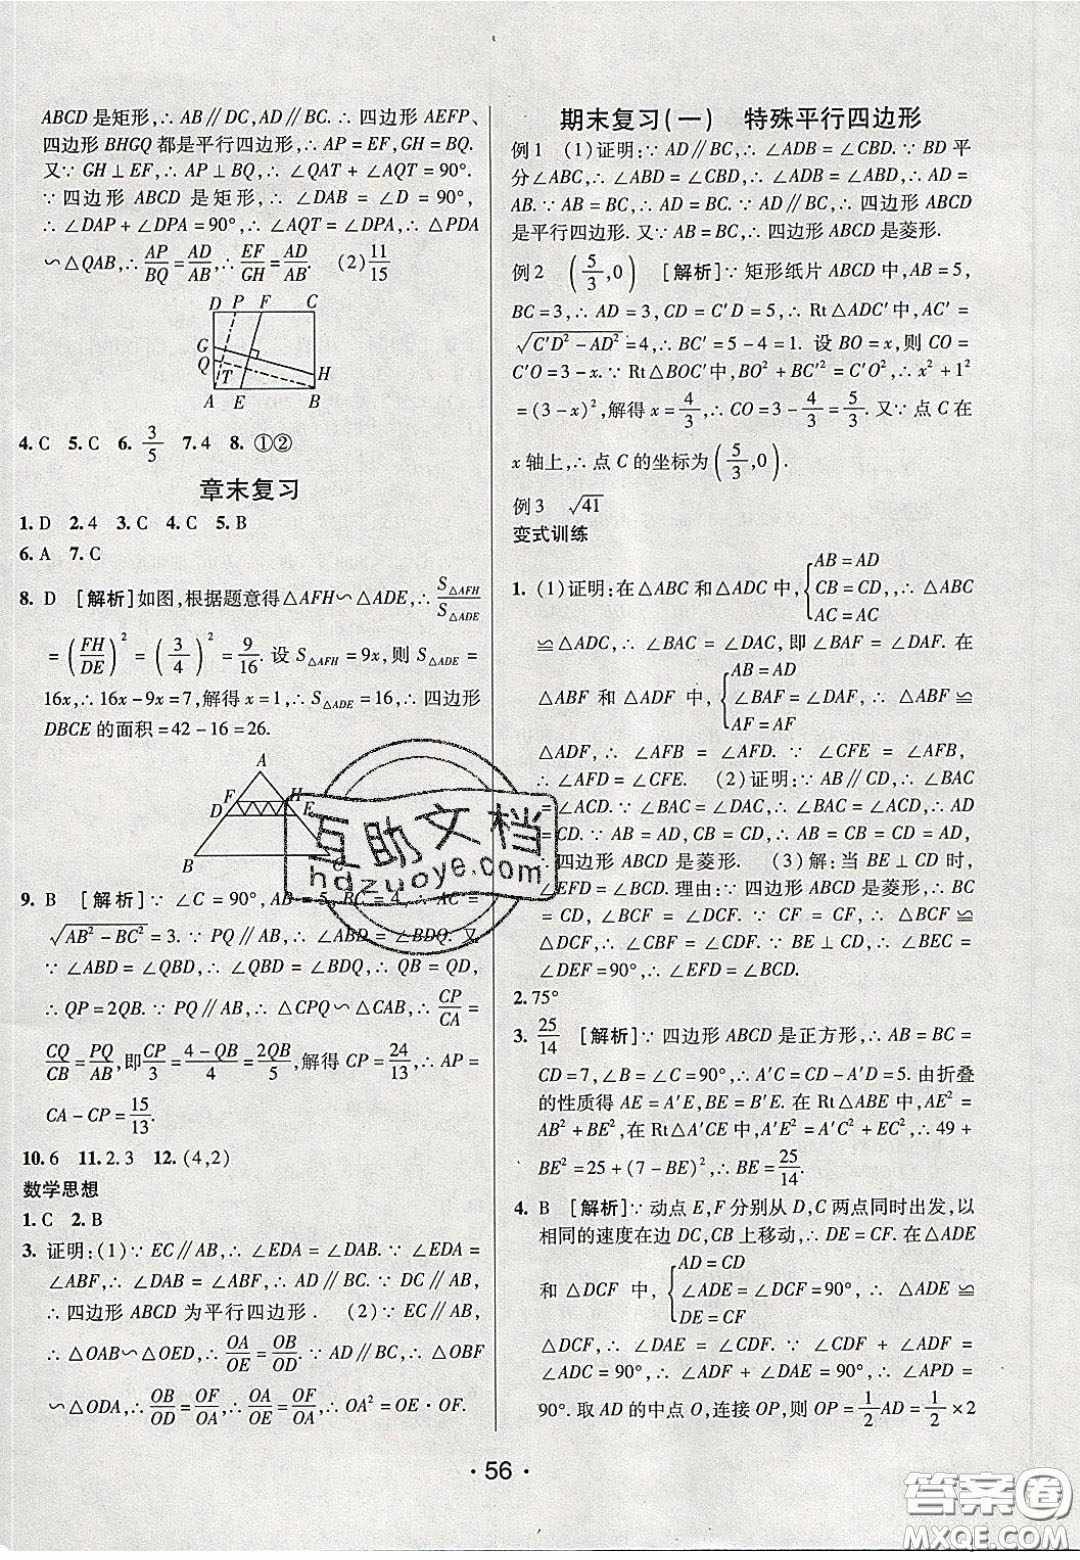 ABCD 是矩形,∴ AB∥DC,AD∥BC.∴ 四边形 AEFP、
四边形 BHGQ 都是平行四边形,∴ AP = EF,GH = BQ.
又∵ GH⊥EF,∴ AP⊥BQ,∴ ∠QAT + ∠AQT = 90°.
∵ 四边形 ABCD 是矩形,∴ ∠DAB = ∠D = 90°,
∴ ∠DAP + ∠DPA = 90°,∴ ∠AQT = ∠DPA,∴ △PDA
∽△QAB,∴ AP/BQ = AD/AB,∴ EF/GH = AD/AB. (2) 11/15
D P F C
G
Q
T H
A E B
4. C 5. C 6. 3/5 7. 4 8. ①②
章末复习
1. D 2. 4 3. C 4. C 5. B
6. A 7. C
8. D [解析]如图,根据题意得△AFH∽△ADE,∴ S△AFH/S△ADE
= (FH/DE)² = (3/4)² = 9/16. 设 S△AFH = 9x,则 S△ADE =
16x,∴ 16x - 9x = 7,解得 x = 1,∴ S△ADE = 16,∴ 四边形
DBCE 的面积 = 42 - 16 = 26.
A
F H
D E
B
9. B [解析]∵ ∠C = 90°,AB = 5,BC = 4,∴ AC =
√(AB² - BC²) = 3. ∵ PQ∥AB,∴ ∠ABD = ∠BDQ. 又
∵ ∠ABD = ∠QBD,∴ ∠QBD = ∠BDQ,∴ QB = QD,
∴ QP = 2QB. ∵ PQ∥AB,∴ △CPQ∽△CAB,∴ CP/CA =
CQ/CB = PQ/AB,即 CP/3 = (4 - QB)/4 = 2QB/5,解得 CP = 24/13,∴ AP =
CA - CP = 15/13.
10. 6 11. 2. 3 12. (4,2)
数学思想
1. C 2. B
3. 证明:(1)∵ EC∥AB,∴ ∠EDA = ∠DAB. ∵ ∠EDA =
∠ABF,∴ ∠DAB = ∠ABF,∴ AD∥BC. ∵ DC∥AB,
∴ 四边形 ABCD 为平行四边形. (2)∵ EC∥AB,
∴ △OAB∽△OED,∴ OA/OE = OB/OD. ∵ AD∥BC,∴ △OBF
∽△ODA,∴ OB/OD = OF/OA,∴ OA/OE = OF/OA,∴ OA² = OE·OF.
期末复习(一) 特殊平行四边形
例 1 (1)证明:∵ AD∥BC,∴ ∠ADB = ∠CBD. ∵ BD 平
分∠ABC,∴ ∠ABD = ∠CBD,∴ ∠ADB = ∠ABD,∴ AD =
AB. ∵ AB = BC,∴ AD = BC. ∵ AD∥BC,∴ 四边形 ABCD
是平行四边形. 又∵ AB = BC,∴ 四边形 ABCD 是菱形.
例 2 (5/3,0) [解析]∵ 矩形纸片 ABCD 中,AB = 5,
BC = 3,∴ AD = 3,CD = C′D = 5,∴ Rt△ADC′中,AC′ =
√(C′D² - AD²) = 4,∴ BC′ = 5 - 4 = 1. 设 BO = x,则 CO =
C′O = 3 - x. ∵ Rt△BOC′中,BO² + BC′² = C′O²,∴ x² + 1²
= (3 - x)²,解得 x = 4/3,∴ CO = 3 - 4/3 = 5/3. 又∵ 点 C 在
x 轴上,∴ 点 C 的坐标为 (5/3,0).
例 3 √41
变式训练
1. (1)证明:在△ABC 和△ADC 中, { AB = AD CB = CD, AC = AC ∴ △ABC
≌△ADC,∴ ∠BAC = ∠DAC,即∠BAF = ∠DAF. 在
△ABF 和△ADF 中, { AB = AD ∠BAF = ∠DAF, AF = AF ∴ △ABF ≌
△ADF,∴ ∠AFB = ∠AFD. ∵ ∠CFE = ∠AFB,
∴ ∠AFD = ∠CFE. (2)证明:∵ AB∥CD,∴ ∠BAC
= ∠ACD. ∵ ∠BAC = ∠DAC,∴ ∠DAC = ∠ACD,∴ AD
= CD. ∵ AB = AD,CB = CD,∴ AB = CB = CD = AD,
∴ 四边形 ABCD 是菱形. (3)解:当 BE⊥CD 时,
∠EFD = ∠BCD. 理由:∵ 四边形 ABCD 是菱形,∴ BC
= CD, ∠BCF = ∠DCF. ∵ CF = CF,∴ △BCF ≌
△DCF,∴ ∠CBF = ∠CDF. ∵ BE⊥CD,∴ ∠BEC =
∠DEF = 90°,∴ ∠EFD = ∠BCD.
2. 75°
3. 25/14 [解析]∵ 四边形 ABCD 是正方形,∴ AB = BC =
CD = 7,∠B = ∠C = 90°,∴ A′C = CD - A′D = 5. 由折叠
的性质得 AE = A′E,BE = B′E. 在 Rt△ABE 中,AE² =
AB² + BE²,在 Rt△A′CE 中,A′E² = A′C² + EC²,∴ 49 +
BE² = 25 + (7 - BE)²,∴ BE = 25/14.
4. B [解析]∵ 动点 E,F 分别从 D,C 两点同时出发,以
相同的速度在边 DC,CB 上移动,∴ DE = CF. 在△ADE
和△DCF 中, { AD = CD ∠ADE = ∠DCF = 90°, DE = CF ∴ △ADE ≌
△DCF,∴ ∠DAE = ∠CDF. ∵ ∠CDF + ∠ADF =
∠ADC = 90°,∴ ∠ADF + ∠DAE = 90°,∴ ∠APD =
90°. 取 AD 的中点 O,连接 OP,则 OP = 1/2 AD = 1/2 × 2
· 56 ·
互助文档
hdzuoye.com
答案圈
MXQE.COM